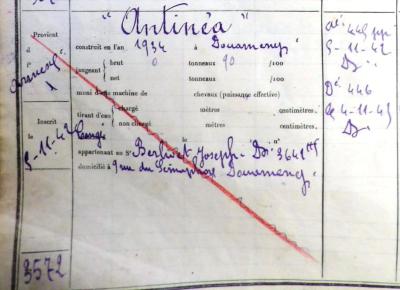 "Antinéa"
Provient
construit en l'an 1934 à Douarnenez
jaugeant { brut 0 tonneaux 90 /100
net tonneaux /100
muni d'une machine de chevaux (puissance effective)
tirant d'eau { chargé mètres centimètres.
non chargé mètres centimètres.
Inscrit
le
5-11-42
le , n°
appartenant au Sr Berlivet Joseph Dz 3641
domicilié à 9 rue du Sémaphore Douarnenez
3572
5-11-42
Dz
Dé 446
le 4-11-45
Dz